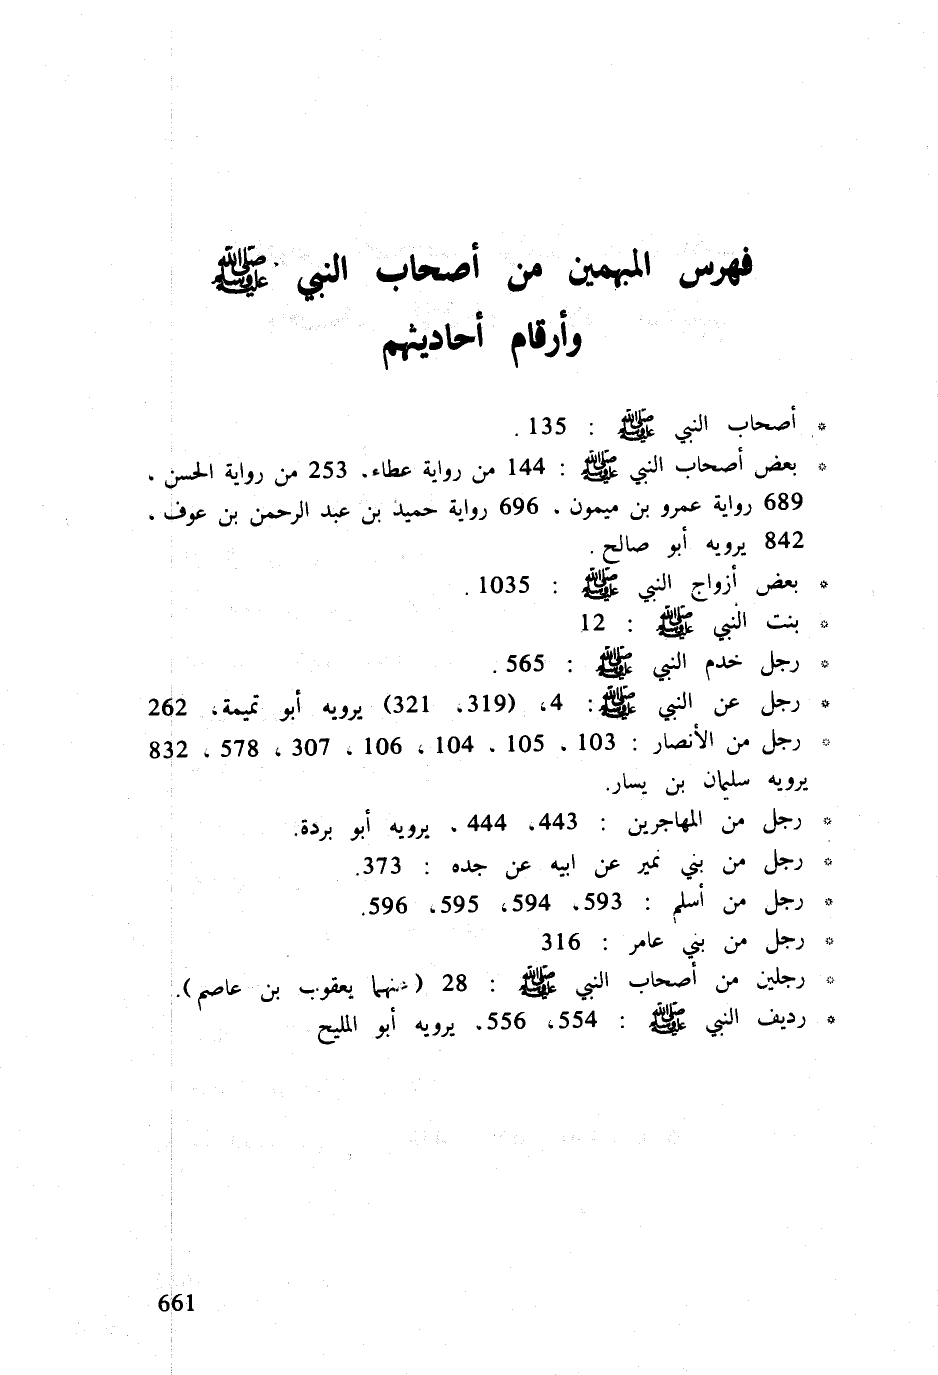 فهرس المبهمين من أصحاب النبي ﷺ
وأرقام أحاديثهم
* أصحاب النبي ﷺ : 135 .
* بعض أصحاب النبي ﷺ : 144 من رواية عطاء، 253 من رواية الحسن ،
689 رواية عمرو بن ميمون ، 696 رواية حميد بن عبد الرحمن بن عوف ،
842 يرويه أبو صالح .
* بعض أزواج النبي ﷺ : 1035 .
* بنت النبي ﷺ : 12
* رجل خدم النبي ﷺ : 565 .
* رجل عن النبي ﷺ : 4، (319، 321) يرويه أبو تميمة، 262
* رجل من الأنصار : 103 ، 105 ، 104 ، 106 ، 307 ، 578 ، 832
يرويه سليمان بن يسار.
* رجل من المهاجرين : 443، 444 ، يرويه أبو بردة.
* رجل من بني نمير عن ابيه عن جده : 373.
* رجل من أسلم : 593، 594، 595، 596.
* رجل من بني عامر : 316
* رجلين من أصحاب النبي ﷺ : 28 (منهما يعقوب بن عاصم).
* رديف النبي ﷺ : 554، 556، يرويه أبو المليح
661